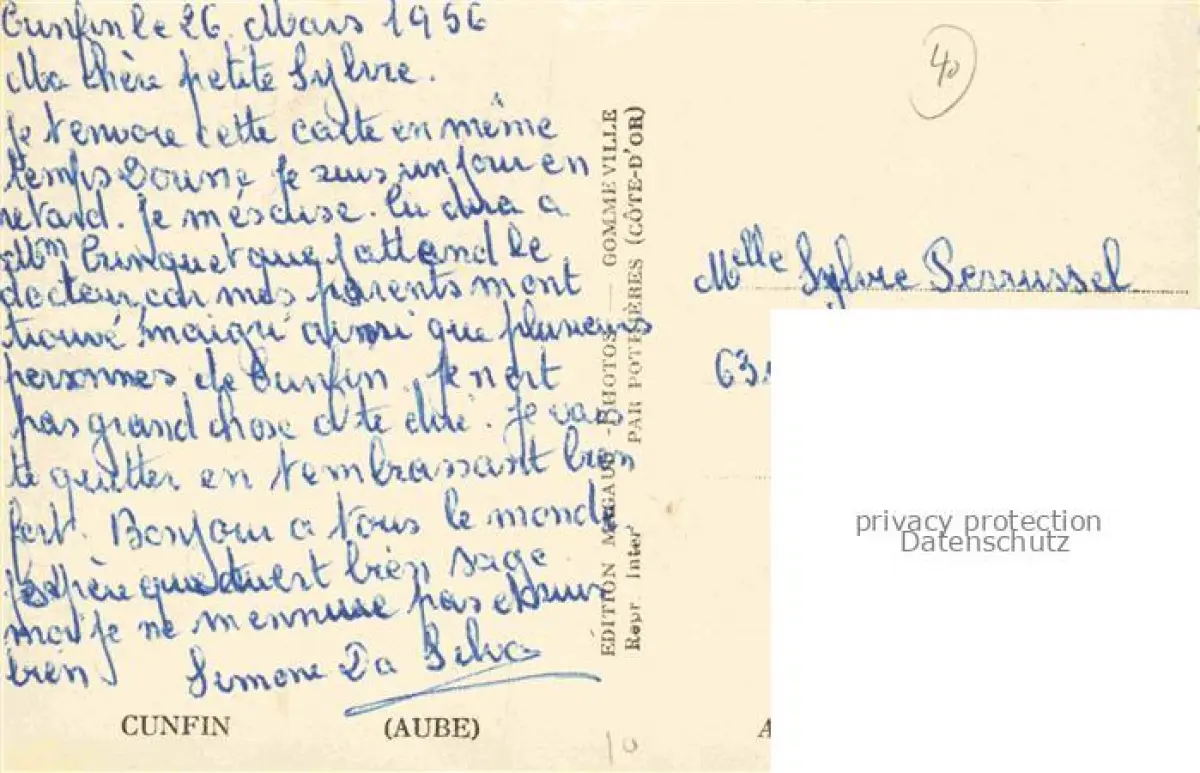 Cunfin le 26. Mars 1956
Ma chère petite Sylvie.
Je t'envoie cette carte en même
temps je suis un jour en
retard. Je m'éscuse. Tu dira a
Mm que j'attend le
docteur, car mes parents m'ont
trouvé maigri ainsi que plusieurs
personnes de Cunfin. Je n'ert
pas grand chose a te dire. Je vais
te quitter en t'embrassant bien
fort. Bonjour a tous le monde
J'éspère que tu est bien sage
moi je ne m'ennuie pas et suis
bien Simone Da Selva
CUNFIN (AUBE)
ÉDITION MIGAUD - PHOTOS - GOMMEVILLE
Repr. Inter PAR POTHIÈRES (CÔTE-D'OR)
40
Melle Sylvie Perrussel
63.
privacy protection
Datenschutz
A
10